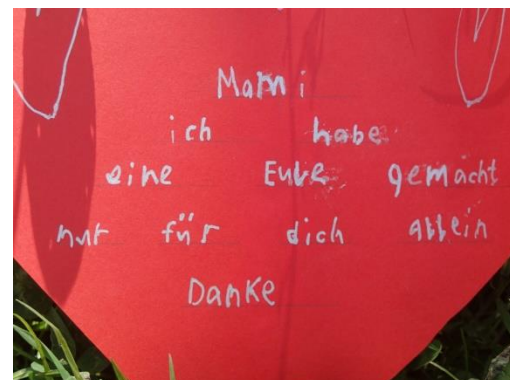 Mami
ich habe
eine Eule gemacht
nur für dich allein
Danke